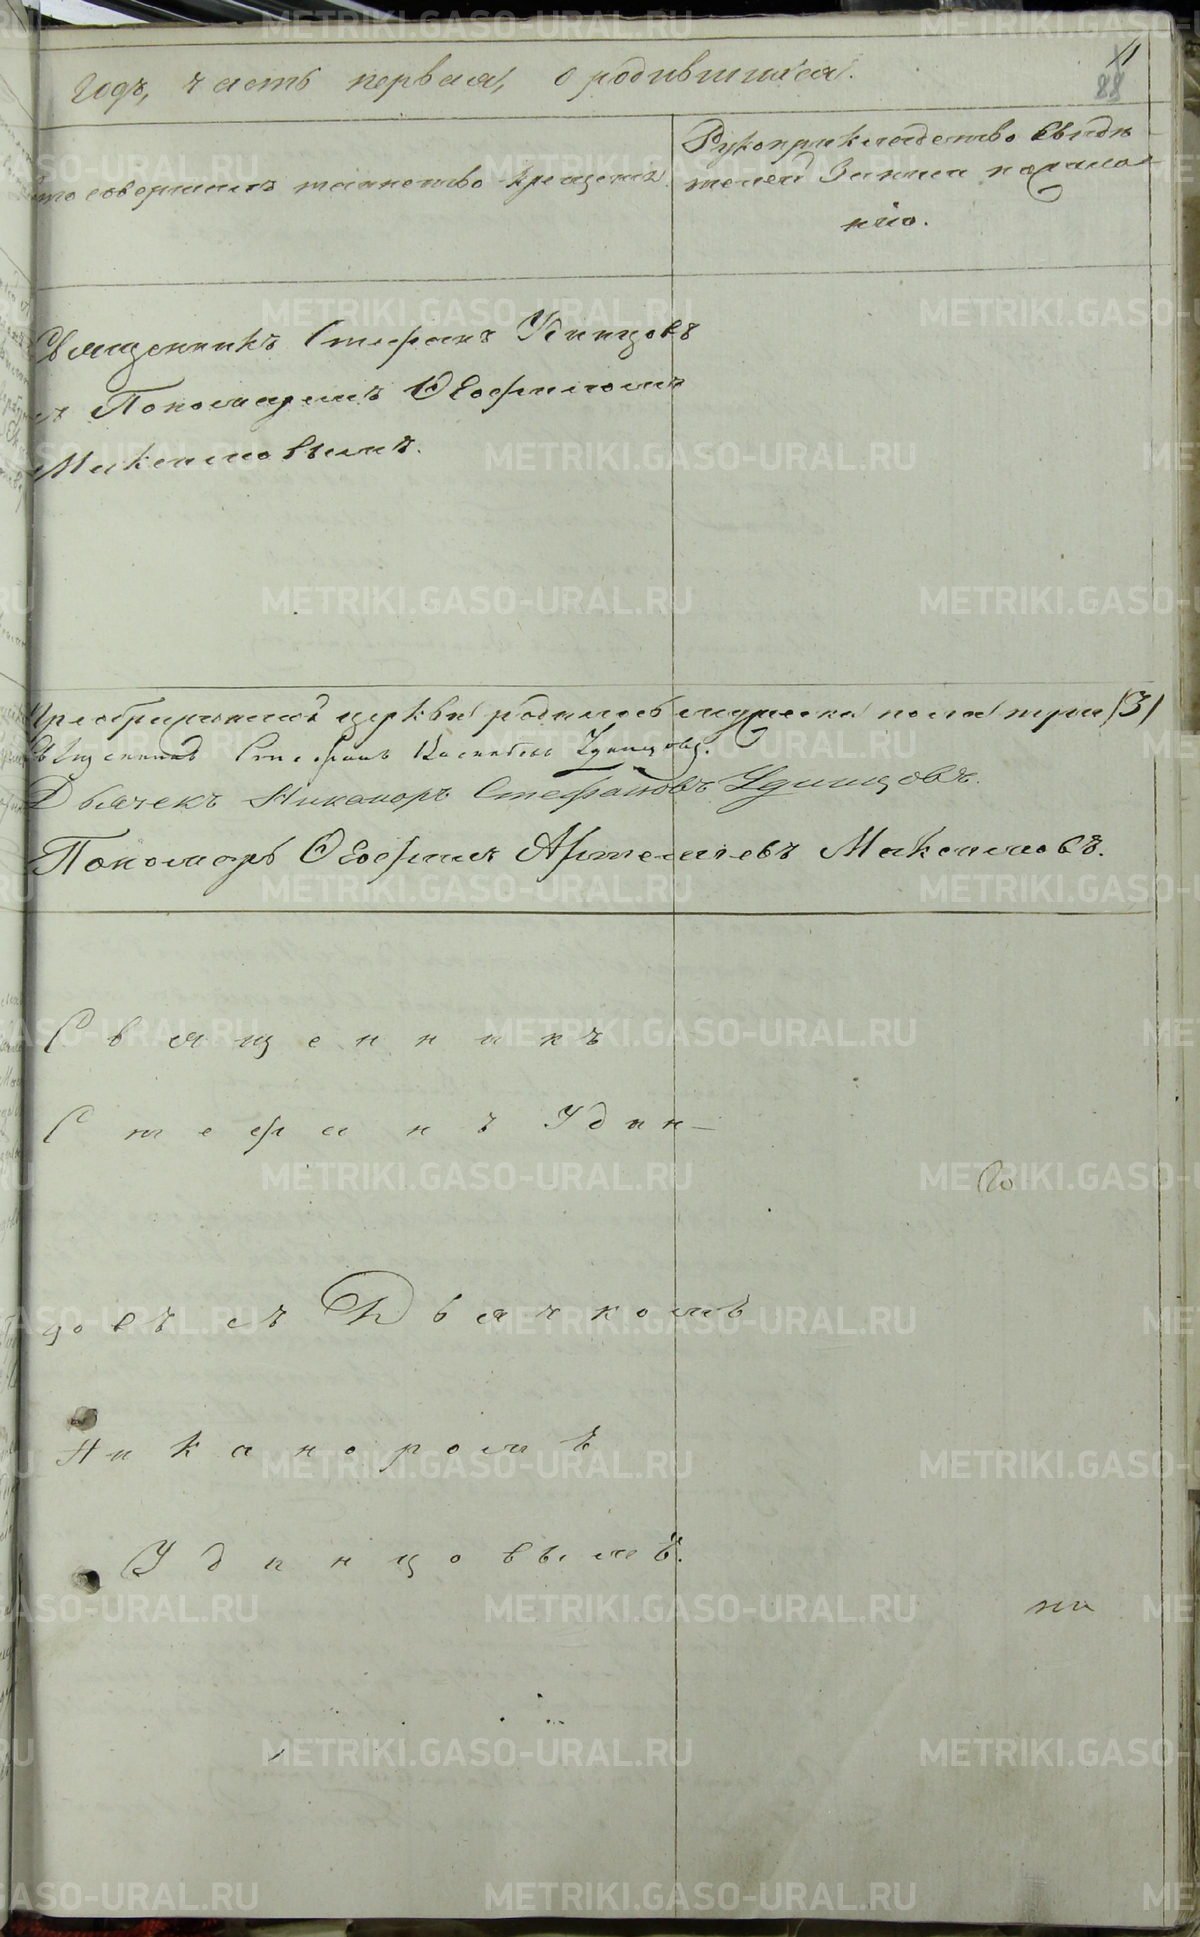 11
88
годъ, часть первая, о родившихся.
Кто совершалъ таинство крещенія
Рукоприкладство свидѣ-
телей записи по жела-
нію.
Священникъ Стефанъ Удинцовъ
съ Пономаремъ Ѳеофилом
Максимовымъ.
церкви родилось мужеска пола три /3/
Священникъ Стефанъ Удинцовъ.
Дьячекъ Никаноръ Стефановъ Удинцовъ.
Пономарь Ѳеофилъ Артемьевъ Максимовъ.
Священникъ
Стефанъ Удин-
цовъ съ Дьячкомъ
Никаноромъ
Удинцовымъ.
METRIKI.GASO-URAL.RU